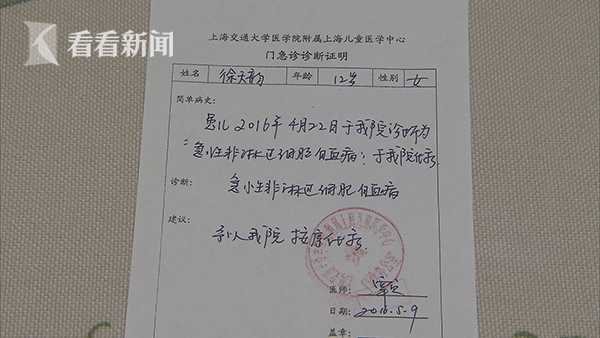 看看新闻
上海交通大学医学院附属上海儿童医学中心
门急诊诊断证明
姓名 徐天韵 年龄 12岁 性别 女
简单病史:
患儿2016年4月22日于我院诊断为
"急性非淋巴细胞白血病";于我院化疗.
诊断: 急性非淋巴细胞白血病
建议:
予以我院按序化疗.
医师:
日期: 2016.5.9
盖章: